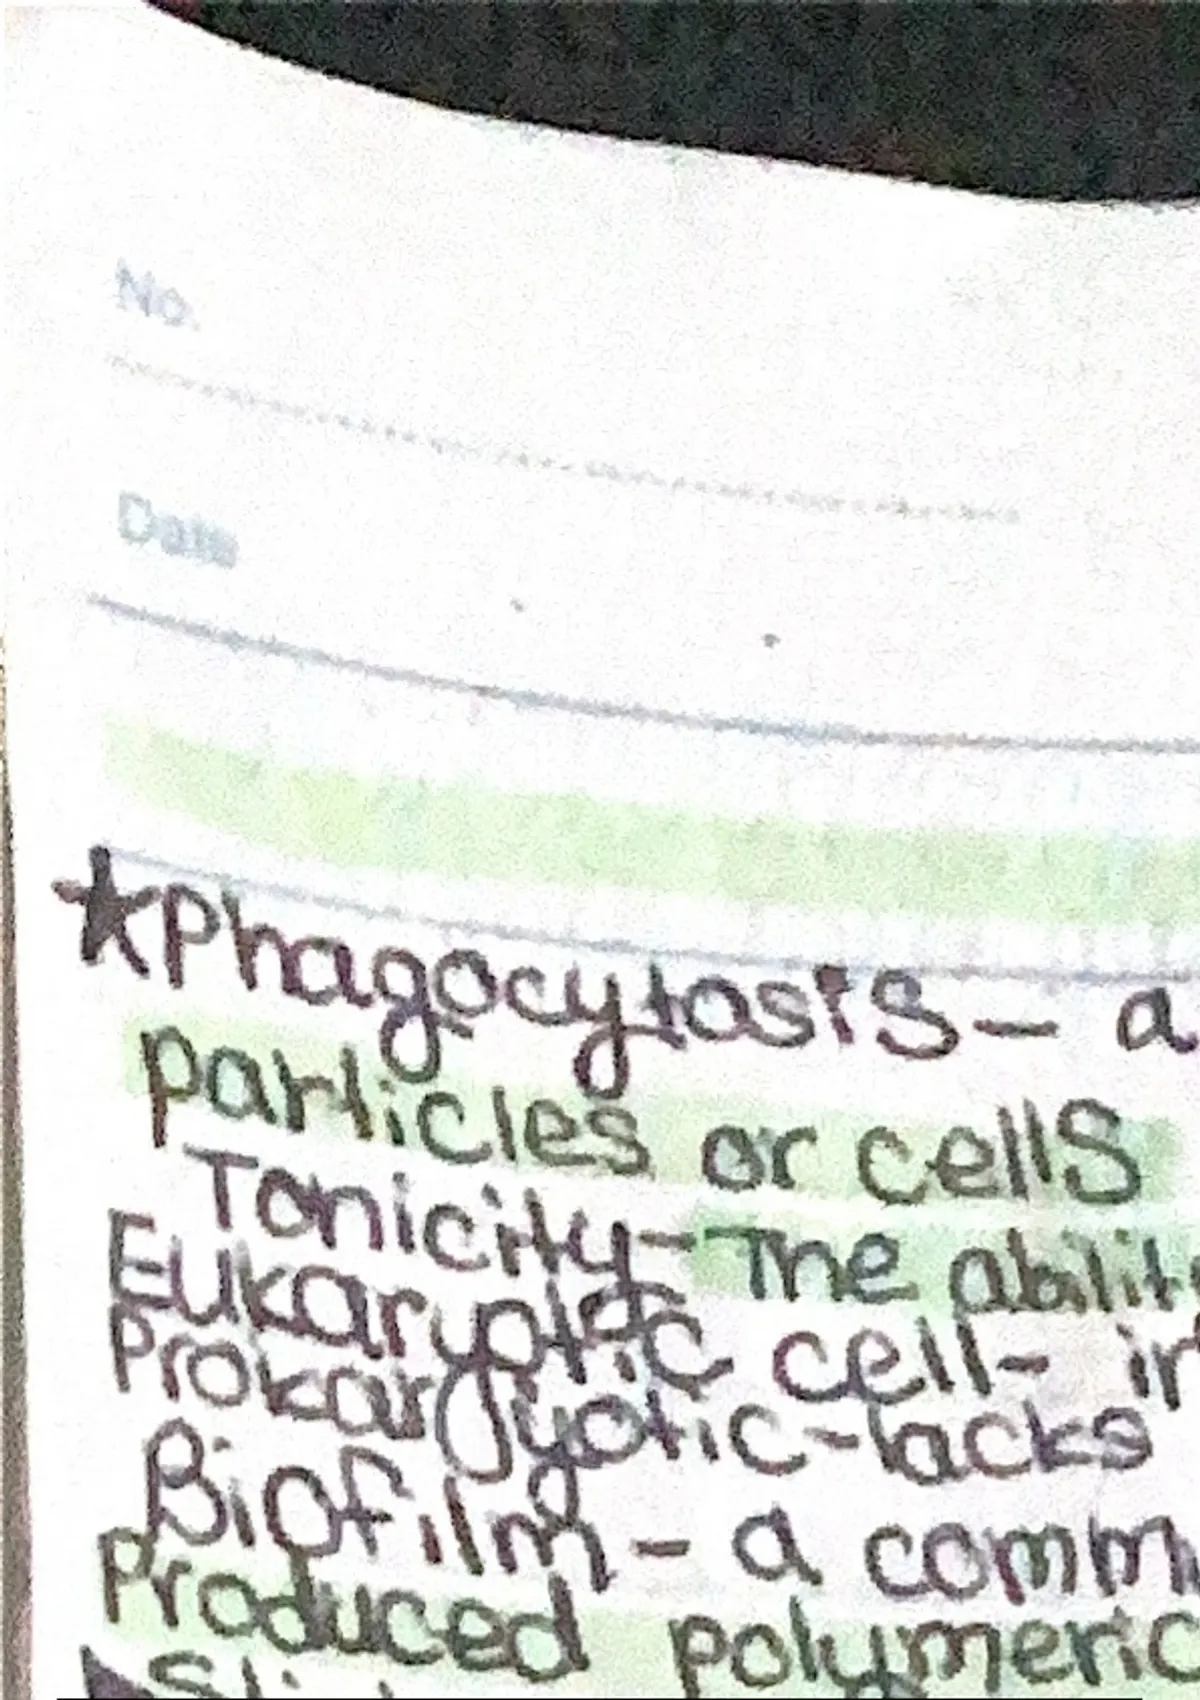 No.
Date
★Phagocytosis— a
particles or cells
Tonicity- The abilit
Eukaryotic cell- in
Prokaryotic-lacks
Biofilm - a comm
Produced polymeric